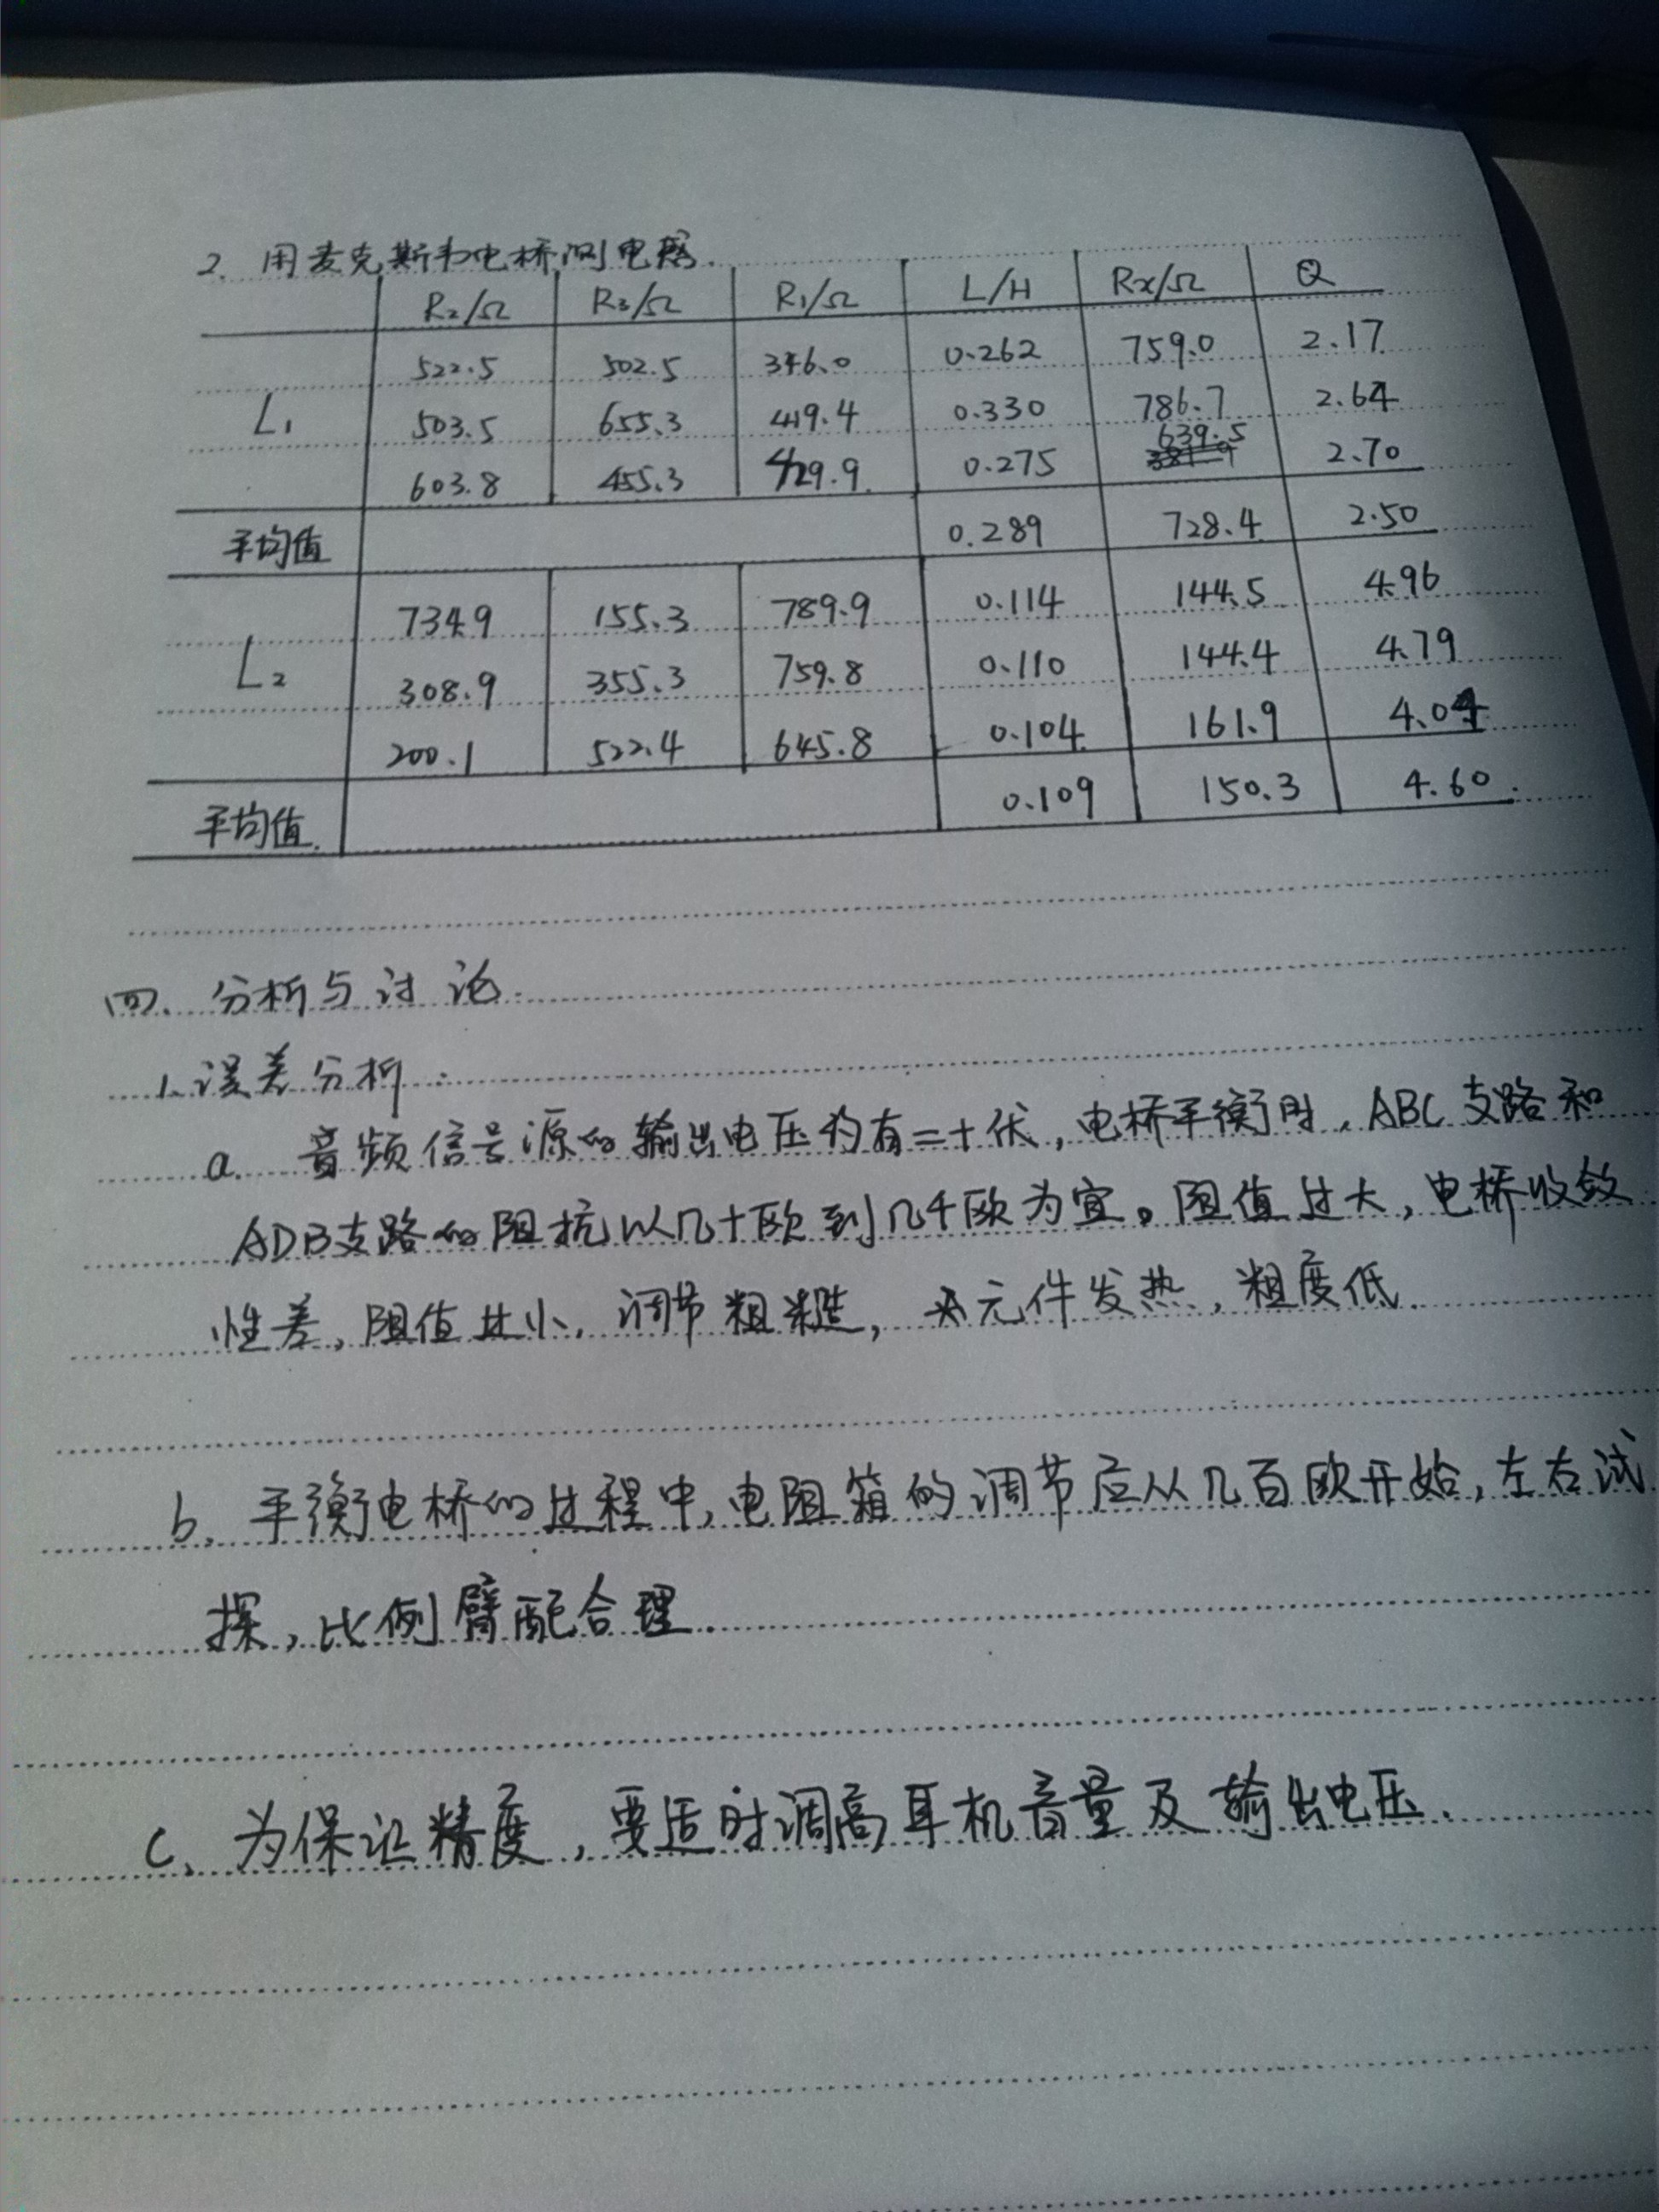 2. 用麦克斯韦电桥测电感.
R₂/Ω R₃/Ω R₁/Ω L/H Rx/Ω Q
522.5 502.5 346.0 0.262 759.0 2.17
L₁ 503.5 655.3 419.4 0.330 786.7 2.64
603.8 455.3 429.9 0.275 639.5 2.70
平均值 0.289 728.4 2.50
734.9 155.3 789.9 0.114 144.5 4.96
L₂ 308.9 355.3 759.8 0.110 144.4 4.79
200.1 522.4 645.8 0.104 161.9 4.04
平均值. 0.109 150.3 4.60.
四、分析与讨论.
1. 误差分析:
a. 音频信号源的输出电压约有二十伏,电桥平衡时,ABC支路和
ADB支路的阻抗以几十欧到几千欧为宜。阻值过大,电桥收敛
性差,阻值过小,调节粗糙,元件发热,粗度低.
b. 平衡电桥的过程中,电阻箱的调节应从几百欧开始,左右试
探,比例臂配合理.
c、为保证精度,要适时调高耳机音量及输出电压.